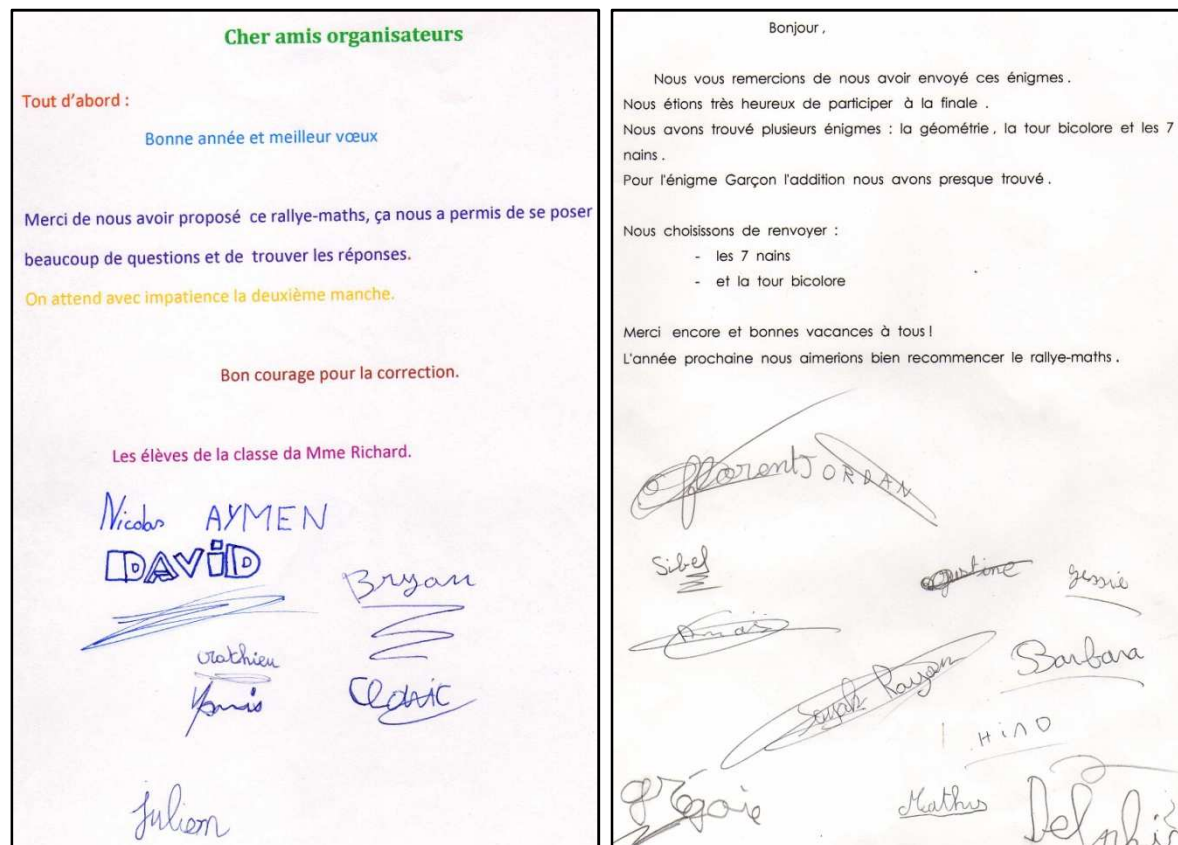 Cher amis organisateurs
Tout d'abord :
Bonne année et meilleur vœux
Merci de nous avoir proposé ce rallye-maths, ça nous a permis de se poser
beaucoup de questions et de trouver les réponses.
On attend avec impatience la deuxième manche.
Bon courage pour la correction.
Les élèves de la classe da Mme Richard.
Nicolas AYMEN
DAVID
Bryan
Mathieu
Yanis Cédric
Julien
Bonjour,
Nous vous remercions de nous avoir envoyé ces énigmes.
Nous étions très heureux de participer à la finale.
Nous avons trouvé plusieurs énigmes : la géométrie, la tour bicolore et les 7
nains.
Pour l'énigme Garçon l'addition nous avons presque trouvé.
Nous choisissons de renvoyer :
- les 7 nains
- et la tour bicolore
Merci encore et bonnes vacances à tous!
L'année prochaine nous aimerions bien recommencer le rallye-maths.
Florent JORDAN
Sibel Jessie
Anaïs
Barbara
Rayan
HIND
Mathis